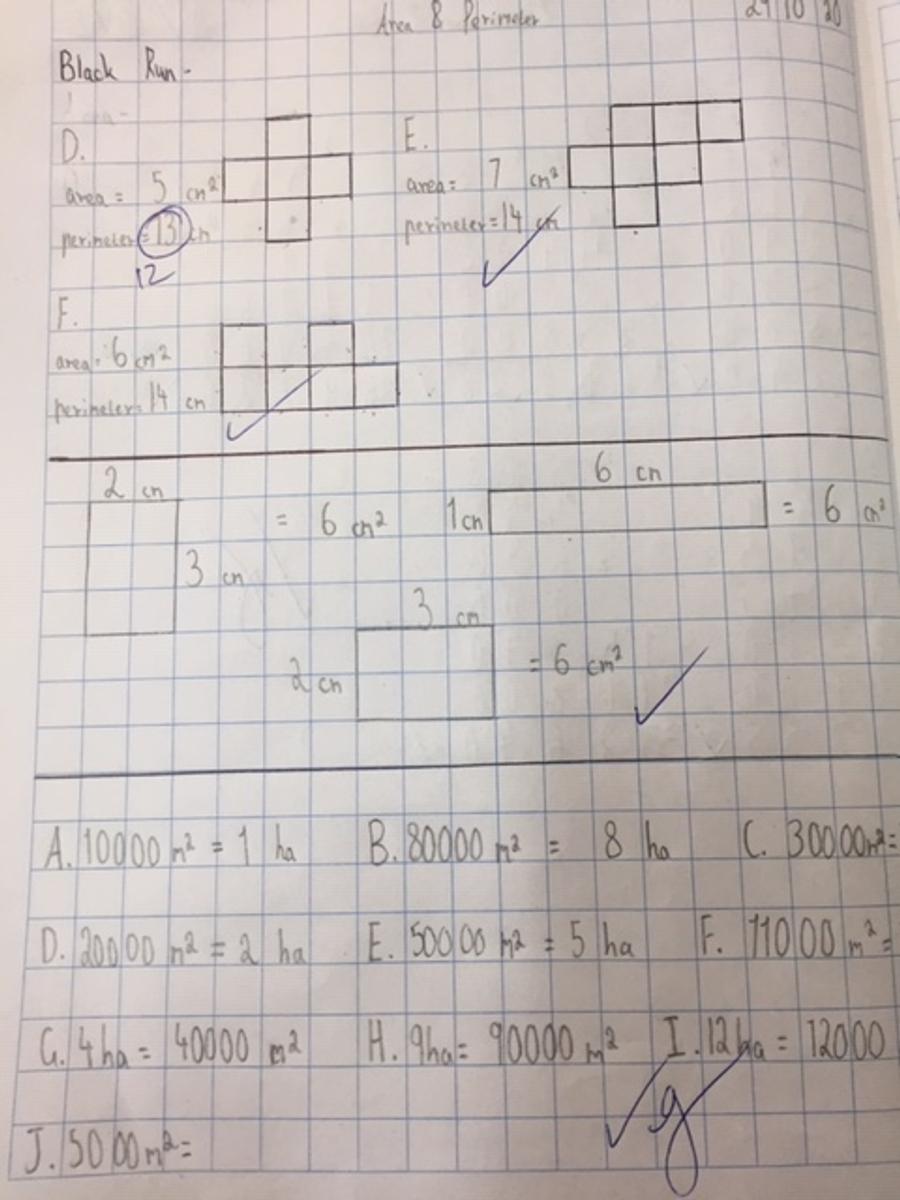 Area & Perimeter 29 10 20
Black Run -
D. E.
area = 5 cm² area = 7 cm²
perimeter = 13 cm perimeter = 14 cm
12
F.
area = 6 cm²
perimeter = 14 cm
2 cm 6 cm
= 6 cm² 1cm = 6 cm²
3 cm
3 cm
2 cm = 6 cm²
A. 10000 m² = 1 ha B. 80000 m² = 8 ha C. 30000m² =
D. 20000 m² = 2 ha E. 50000 m² = 5 ha F. 11000 m² =
G. 4ha = 40000 m² H. 9ha = 90000 m² I. 12ha = 12000
g
J. 5000m² =